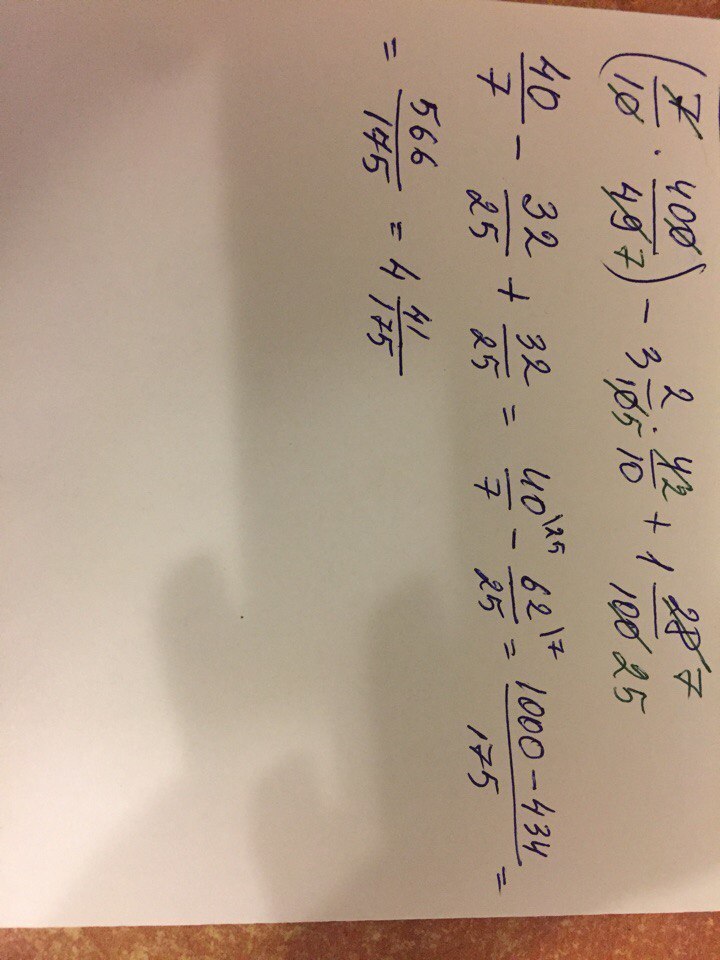 (7/10 · 400/49 7) − 3 2/10 5 · 42/10 + 1 28/100 7/25
40/7 − 32/25 + 32/25 = 40\25/7 − 62\7/25 = 1000 − 434/175 =
= 566/145 = 4 41/175